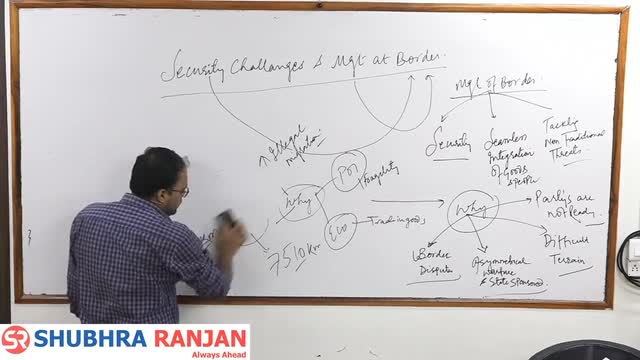 Security Challanges & Mgt at Border.
Mgt of Border.
Security
Seamless
Integration
of Goods
& people
Tackling
Non Traditional
Threats.
↑ Illegal
migration
Pol
Hostility
Why
Eco
Trading goods
7510 km
Why
Party's are
not Ready
Difficult
Terrain
Border
Disputes
Asymmetrical
warfare
& State Sponsored
SR SHUBHRA RANJAN
Always Ahead